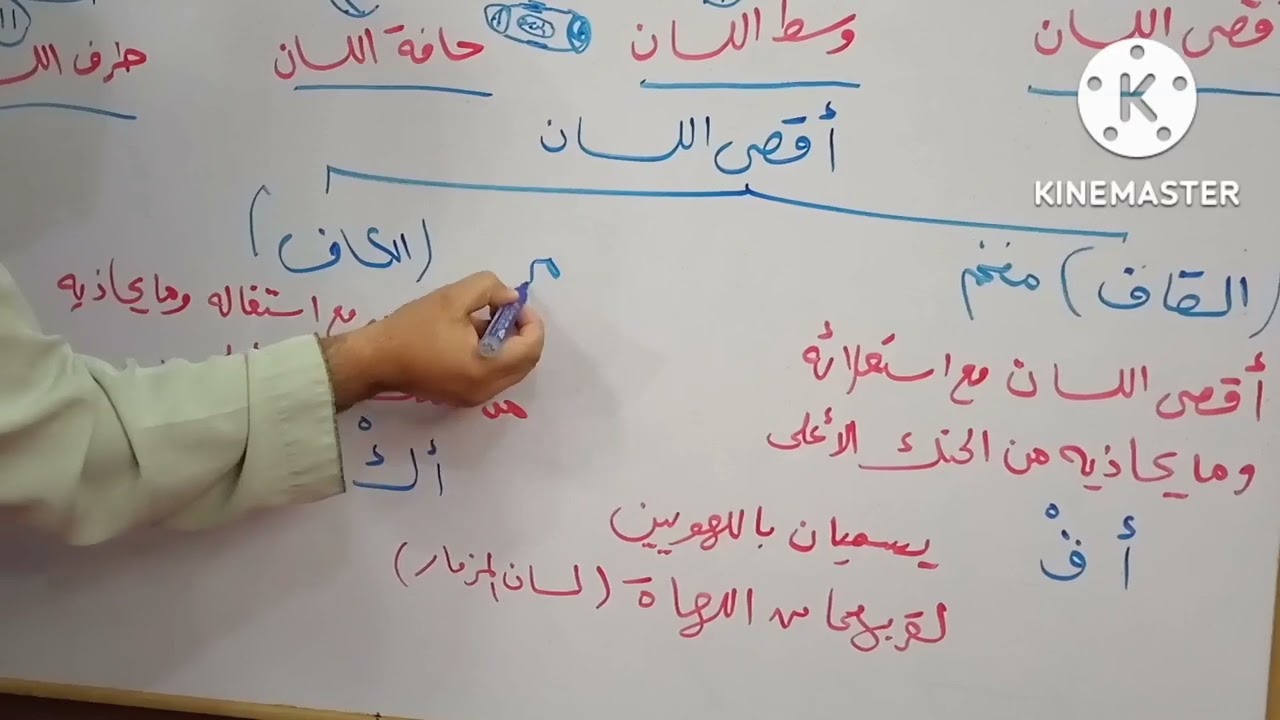 أقصى اللسان
وسط اللسان
حافة اللسان
طرف
11
KINEMASTER
أقصى اللسان
(القاف) مفخم
أقصى اللسان مع استعلائه
وما يحاذيه من الحنك الأعلى
أقْ
(الكاف)
مع استفاله وما يحاذيه
أكْ
يسميان باللهويين
لقربهما من اللهاة (لسان المزمار)